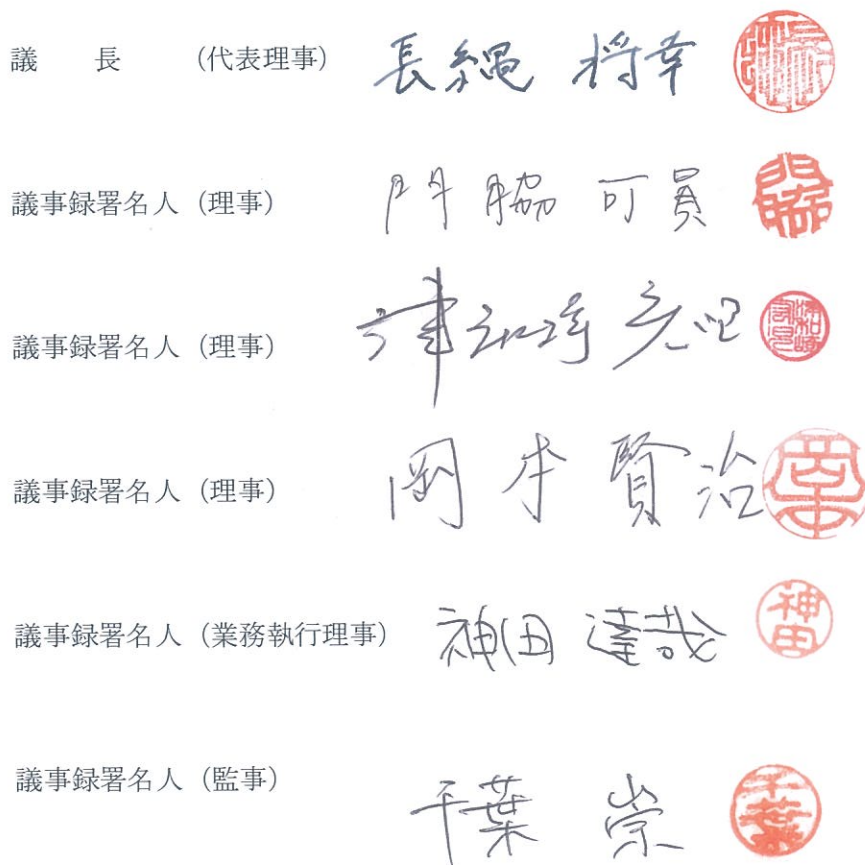 議　　長　　（代表理事） 長縄 将幸
議事録署名人（理事） 門脇 可員
議事録署名人（理事） 津和崎
議事録署名人（理事） 岡本 賢治 岡本
議事録署名人（業務執行理事） 神田 達哉 神田
議事録署名人（監事） 千葉 崇 千葉